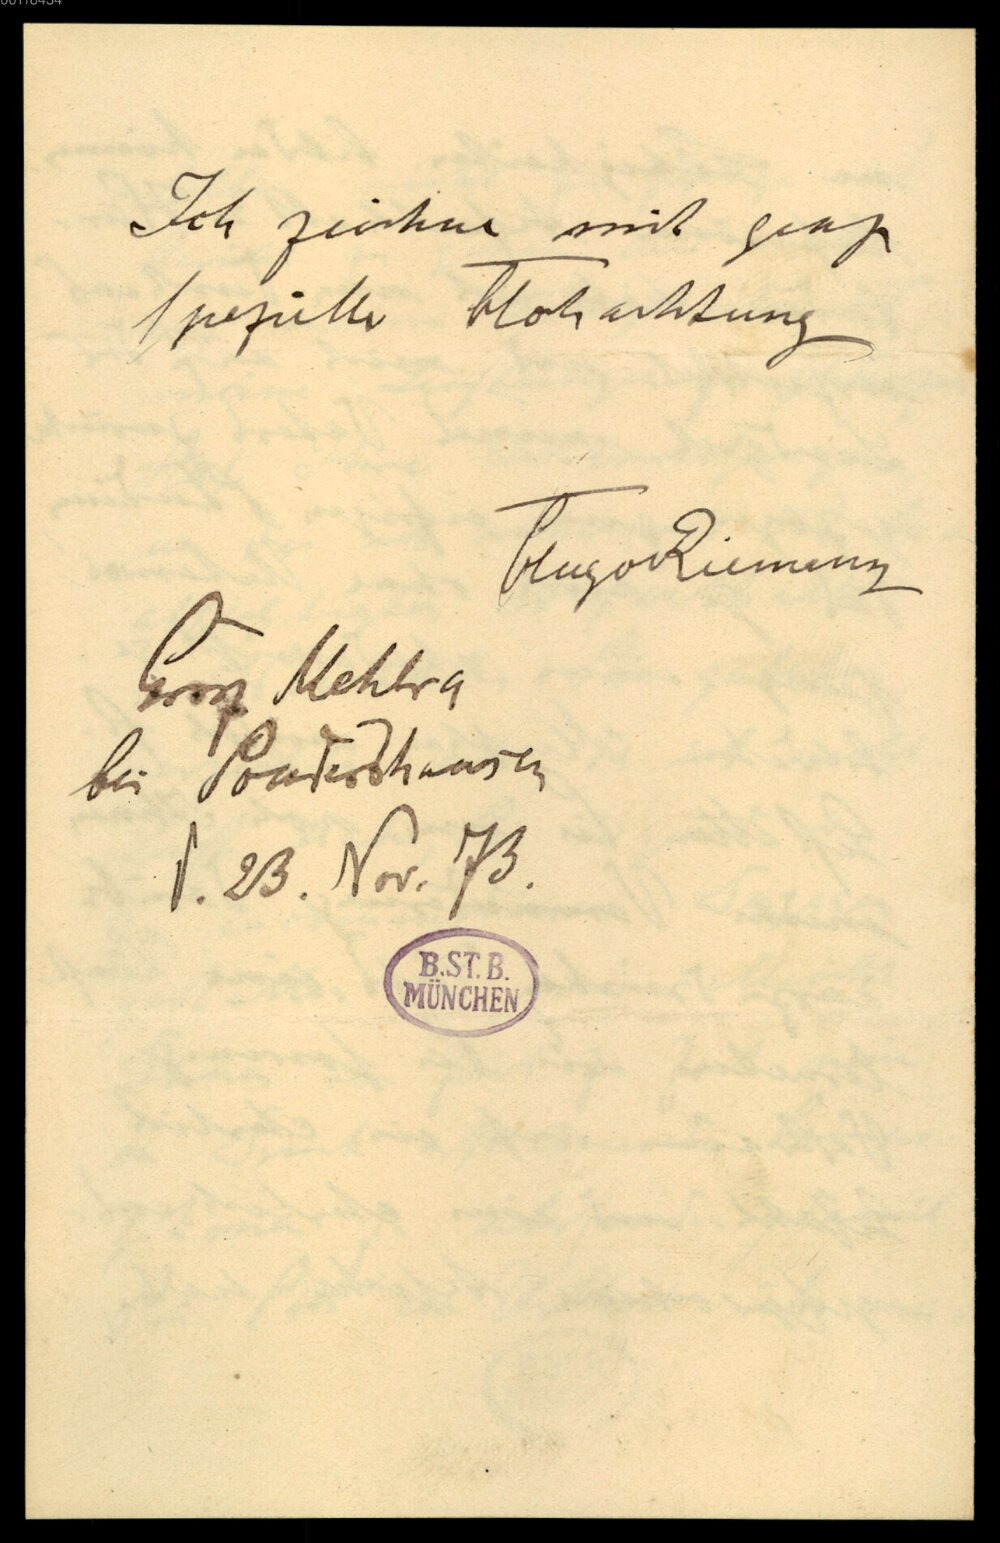 Ich zeichne mit ganz
spezieller Hochachtung
Hugo Riemann
Groß Mehlra
bei Sondershausen
d. 23. Nov. 73.
B.ST.B.
MÜNCHEN
00118434